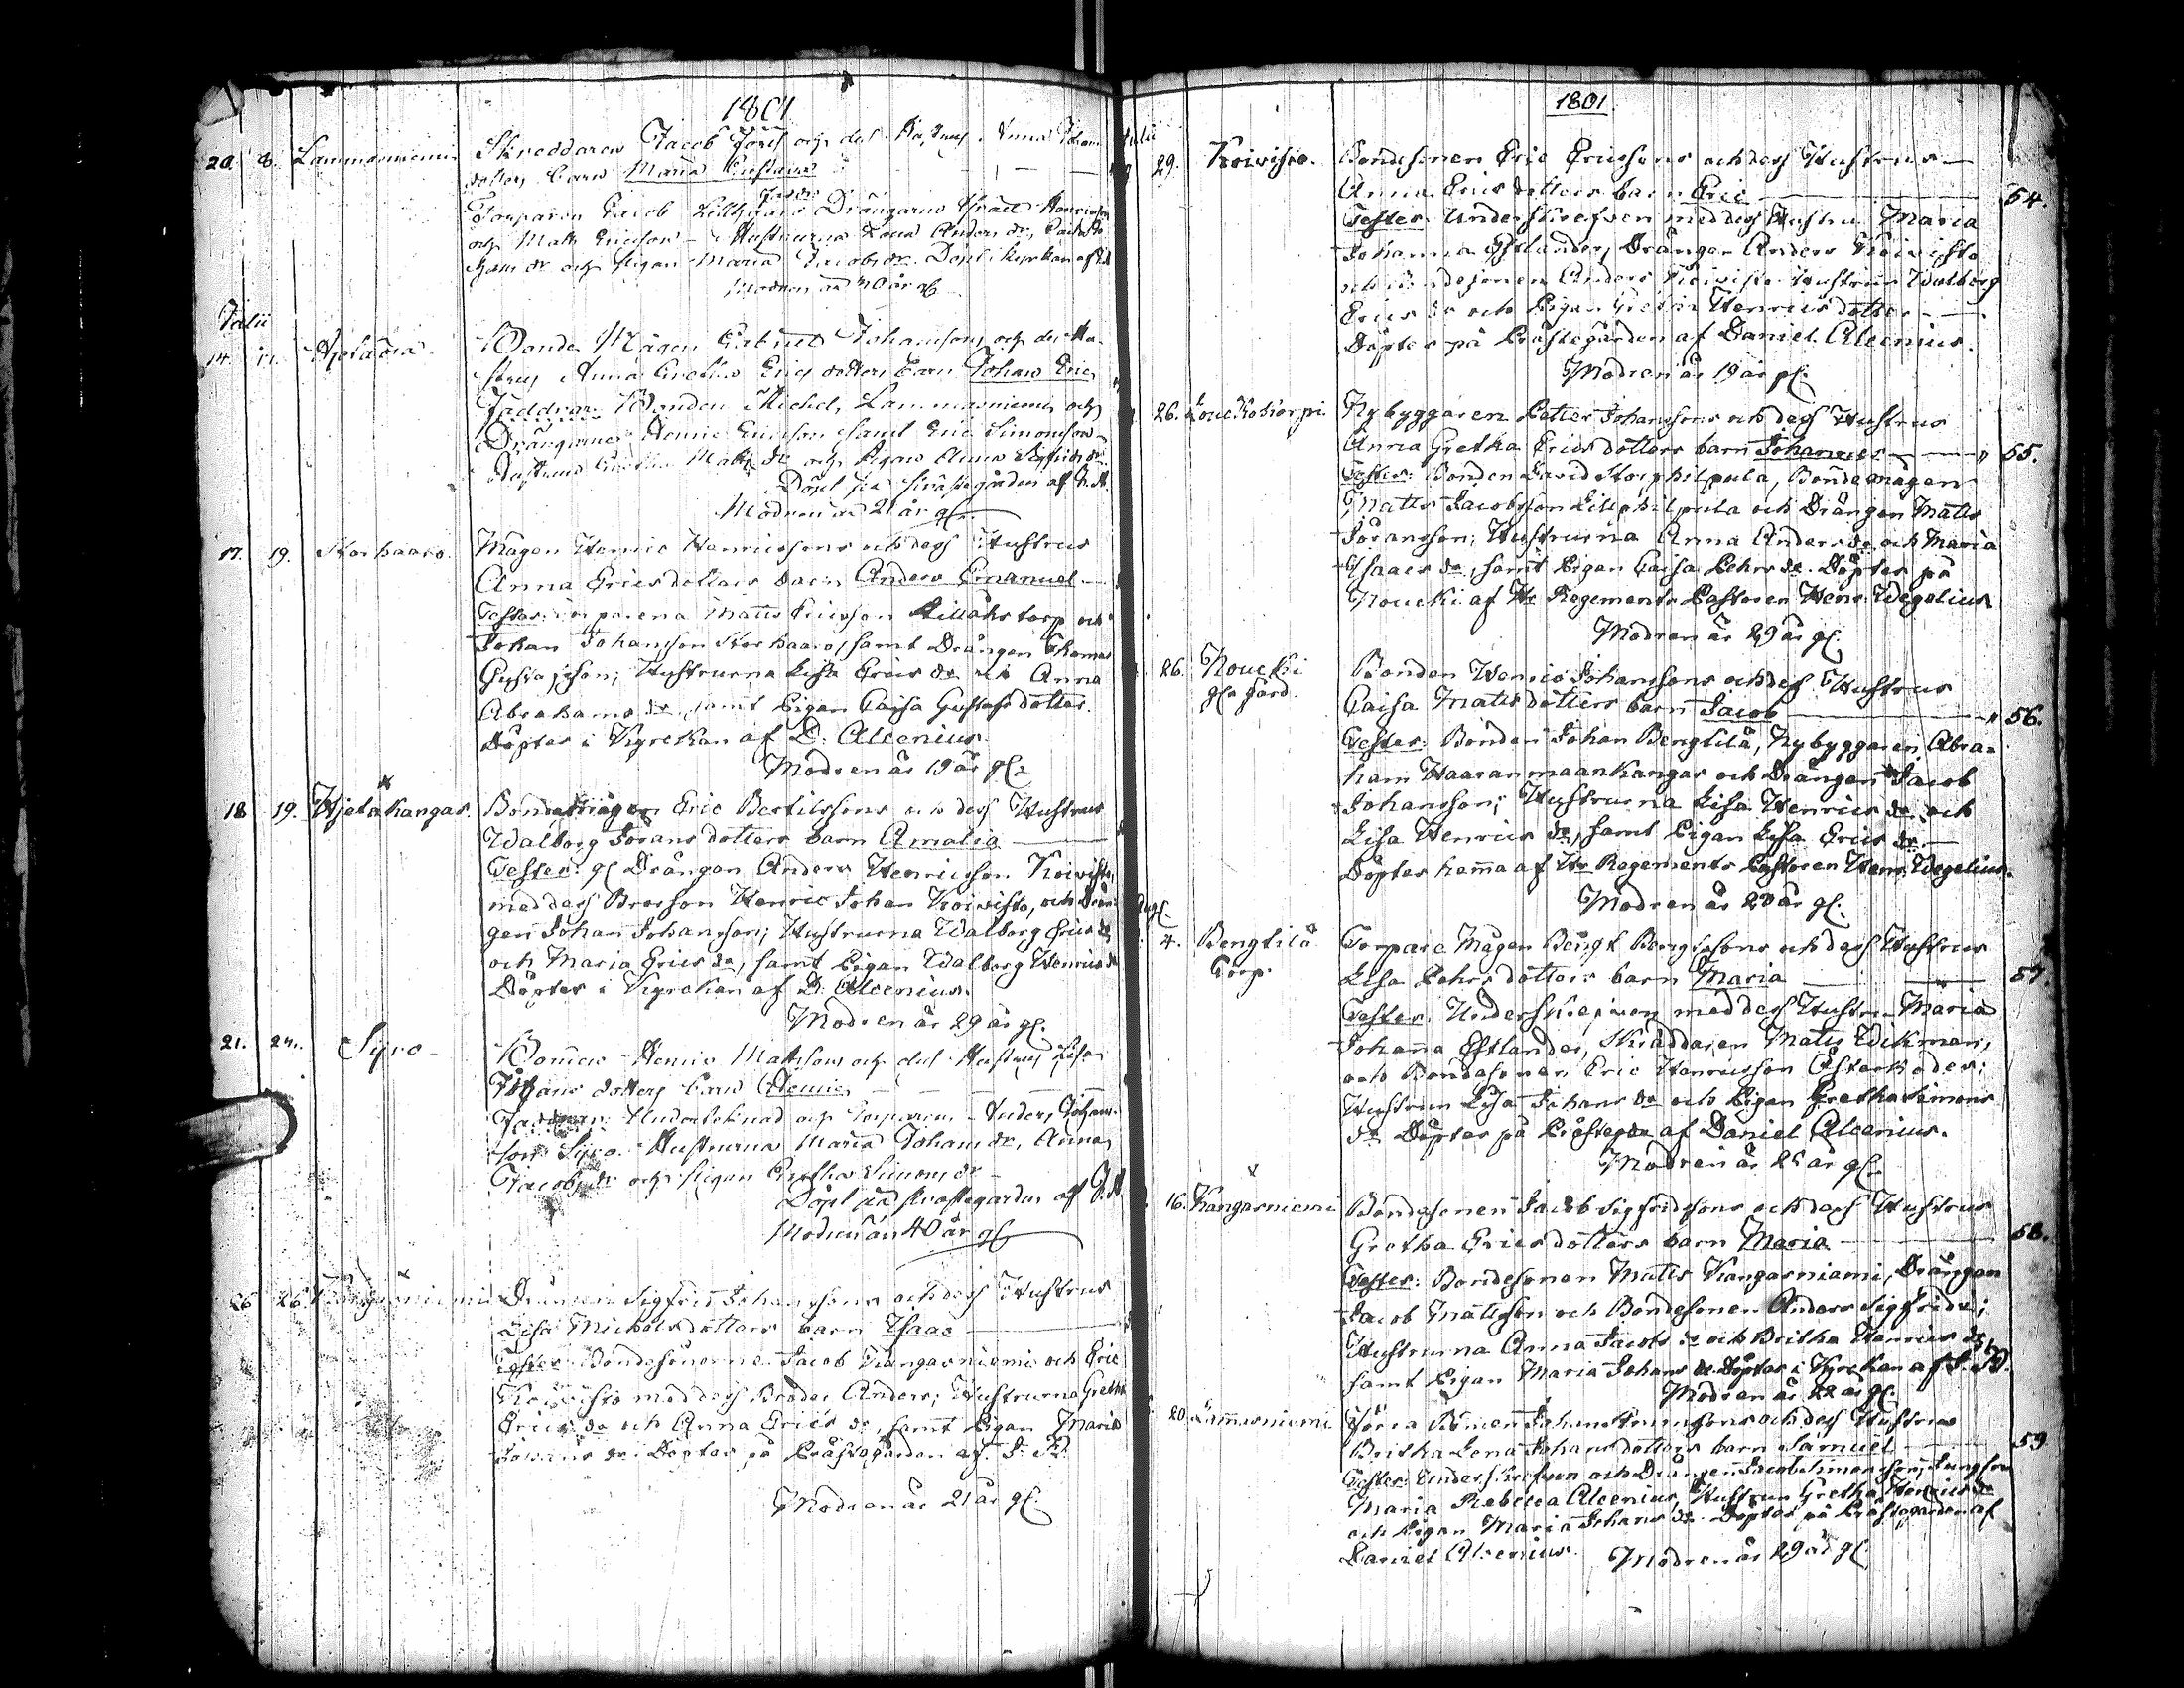 1801
20. 8. Lammasniemi Skreddaren Jacob och des Hustrus Anna Johans
dotters barn Maria Christina
Torparen Jacob Drängarne Henricsson
och Matts Ericsson Hustrurna Anders dr,
dr och Pigan Maria Jacobs dr. Döpt i kyrkan af
Modren är 40 år gl.
Julii
14. Hjelkäoia Bonde Mågen Gabriel Johansons och des Hu-
strus Anna Gretha Erics dotters barn Johan Eric
Faddrar Bonden Michel Lammasniemi och
Drängarne Henric Ericsson samt Eric Simonsson
Hustrun Matts dr och Pigan Anna Sigfrids dr
Döpt på Prästegården af
Modren är 21 år gl.
17. 19. Storhaaro Mågen Henric Henricssons och dess Hustrus
Anna Ericsdotters barn Anders Emanuel
Testes: Torparena Matts Ericsson torp och
Johan Johansson Storhaaro, samt Drängen Thomas
Gustafsson; Hustrurna Lisa Erics dr och Anna
Abrahams dr, samt Pigan Caisa Gustafsdotter.
Döptes i Kyrckan af D. Alcenius.
Modren är 19 år gl.
18 19. Hjelakangas. Bondemågen Eric Bertilssons och dess Hustrus
Walborg Jöransdotters barn Amalia
Testes: gl Drängen Anders Henricsson Koivisto,
med dess Brorson Henric Johan Koivisto, och Drän-
gen Johan Johansson; Hustrurna Walborg Erics dr
och Maria Erics dr, samt Pigan Walborg Henrics dr
Döptes i Kyrckan af D. Alcenius.
Modren är 29 år gl.
21. 24. Syro Bonden Henric Mattssons och des Hustrus Lisa
Johans dotters barn Henric
Faddrar: Undertecknad och Torparen Anders Johans-
son Syro. Hustrurna Maria Johans dr, Anna
Jacobs dr och Pigan Gretha Simons dr
Döpt på Prästegården af
Modren är 40 år gl
26 26. Kangasniemi Sigfrid Johanssons och dess Hustrus
Lisa Michelsdotters barn Isaac
Testes: Bondesönerne Jacob Kangasniemi och Eric
Koivisto med dess Broder Anders; Hustrurna Gretha
Erics dr och Anna Erics dr, samt Pigan Maria
Johans dr. Döptes på Prästegården af
Modren är 21 år gl.
1801.
Julii
29. Koivisto. Bondesonen Eric Ericssons och dess Hustrus
Anna Ericsdotters barn Eric 54.
Testes: Underskrefven med dess Hustru Maria
Johanna Estlander, Drängen Anders Koivisto
och Bondesonen Anders Koivisto Hustrun Walborg
Erics dr och Pigan Gretha Henricsdotter
Döptes på Prästegården af Daniel Alcenius.
Modren är 19 år gl.
26. Nybyggaren Petter Johanssons och dess Hustrus
Anna Gretha Ericsdotters barn Johannes 55.
Testes: Bonden David Storphilpula, Bondemågen
Matts Jacobsson Lillphilpula och Drängen Matts
Jöransson; Hustrurna Anna Anders dr och Maria
Isaacs dr, samt Pigan Caisa Pehrs dr. Döptes på
Noucki af Hr Regements Pastoren Henr. Wegelius
Modren är 29 år gl.
26. Noucki Bonden Henric Johanssons och dess Hustrus
gla gård. Caisa Mattsdotters barn Jacob 56.
Testes: Bonden Johan Bengtilä, Nybyggaren Abra-
ham Haaranmaankangas och Drängen Jacob
Johansson; Hustrurna Lisa Henrics dr och
Lisa Henrics dr, samt Pigan Lisa Erics dr.
Döptes hemma af Hr Regements Pastoren Henr. Wegelius.
Modren är år gl.
Aug.
4. Bengtilä Torpare Mågen Bengt Bengtssons och dess Hustrus
Torp. Lisa Pehrsdotters barn Maria 57.
Testes: Underskrefven med dess Hustru Maria
Johanna Estlander, Skräddaren Matts Wikman,
och Bondesonen Eric Henricsson
Hustrun Lisa Johans dr och Pigan Gretha Simons
dr Döptes på Prästegdn af Daniel Alcenius.
Modren är år gl.
16. Kangasniemi Bondesonen Jacob Sigfridssons och dess Hustrus
Gretha Ericsdotters barn Maria 58.
Testes: Bondesonen Matts Kangasniemi, Drängen
Jacob Mattsson och Bondesonen Anders Sigfrids;
Hustrurna Anna Jacobs dr och Britha Henrics dr,
samt Pigan Maria Johans dr. Döptes i Kyrckan af
Modren är 22 år gl.
20. Lammasniemi Johan och dess Hustrus
Britha Lena Johansdotters barn Samuel 59
Testes: Underskrefven och Drängen Jacob Simonsson, Jungfru
Maria Rebecca Alcenius, Hustrun Gretha Henrics dr
och Pigan Maria Johans dr. Döptes på Prästegården af
Daniel Alcenius. Modren är 29 år gl